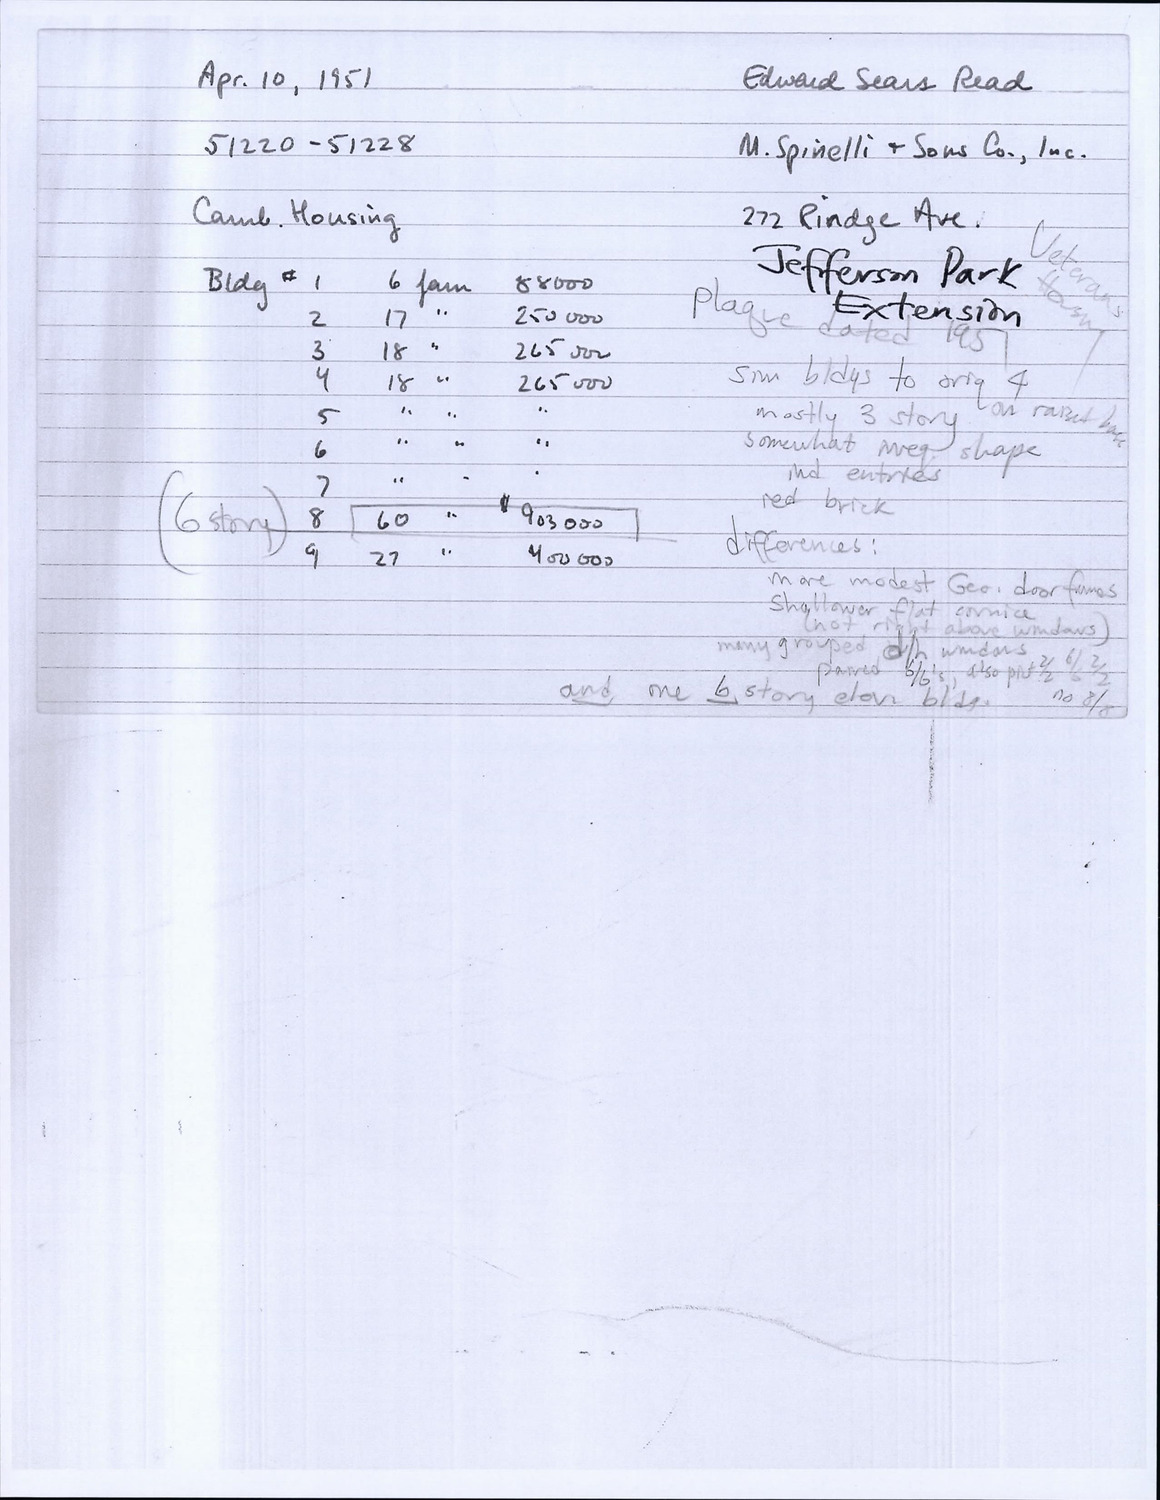 Apr. 10, 1951
Edward Sears Read
51220 - 51228
M. Spinelli + Sons Co., Inc.
Camb. Housing
272 Rindge Ave.
Veterans
Jefferson Park
Extension
Bldg # 1 6 fam 88000
2 17 " 250 000
3 18 " 265 000
4 18 " 265 000
5 " " "
6 " " "
7 " " "
(6 story) 8 60 " $ 903 000
9 27 " 400 000
plaque dated 1951
sim bldgs to orig 4
mostly 3 story on raised base
somewhat irreg. shape
ind entries
red brick
differences:
more modest Geo. door frames
shallower flat cornice
(not right above windows)
many grouped d/h windows
paired 6/6's, also 2/2 6/6 2/2
no 8/8
and one 6 story elev bldg.